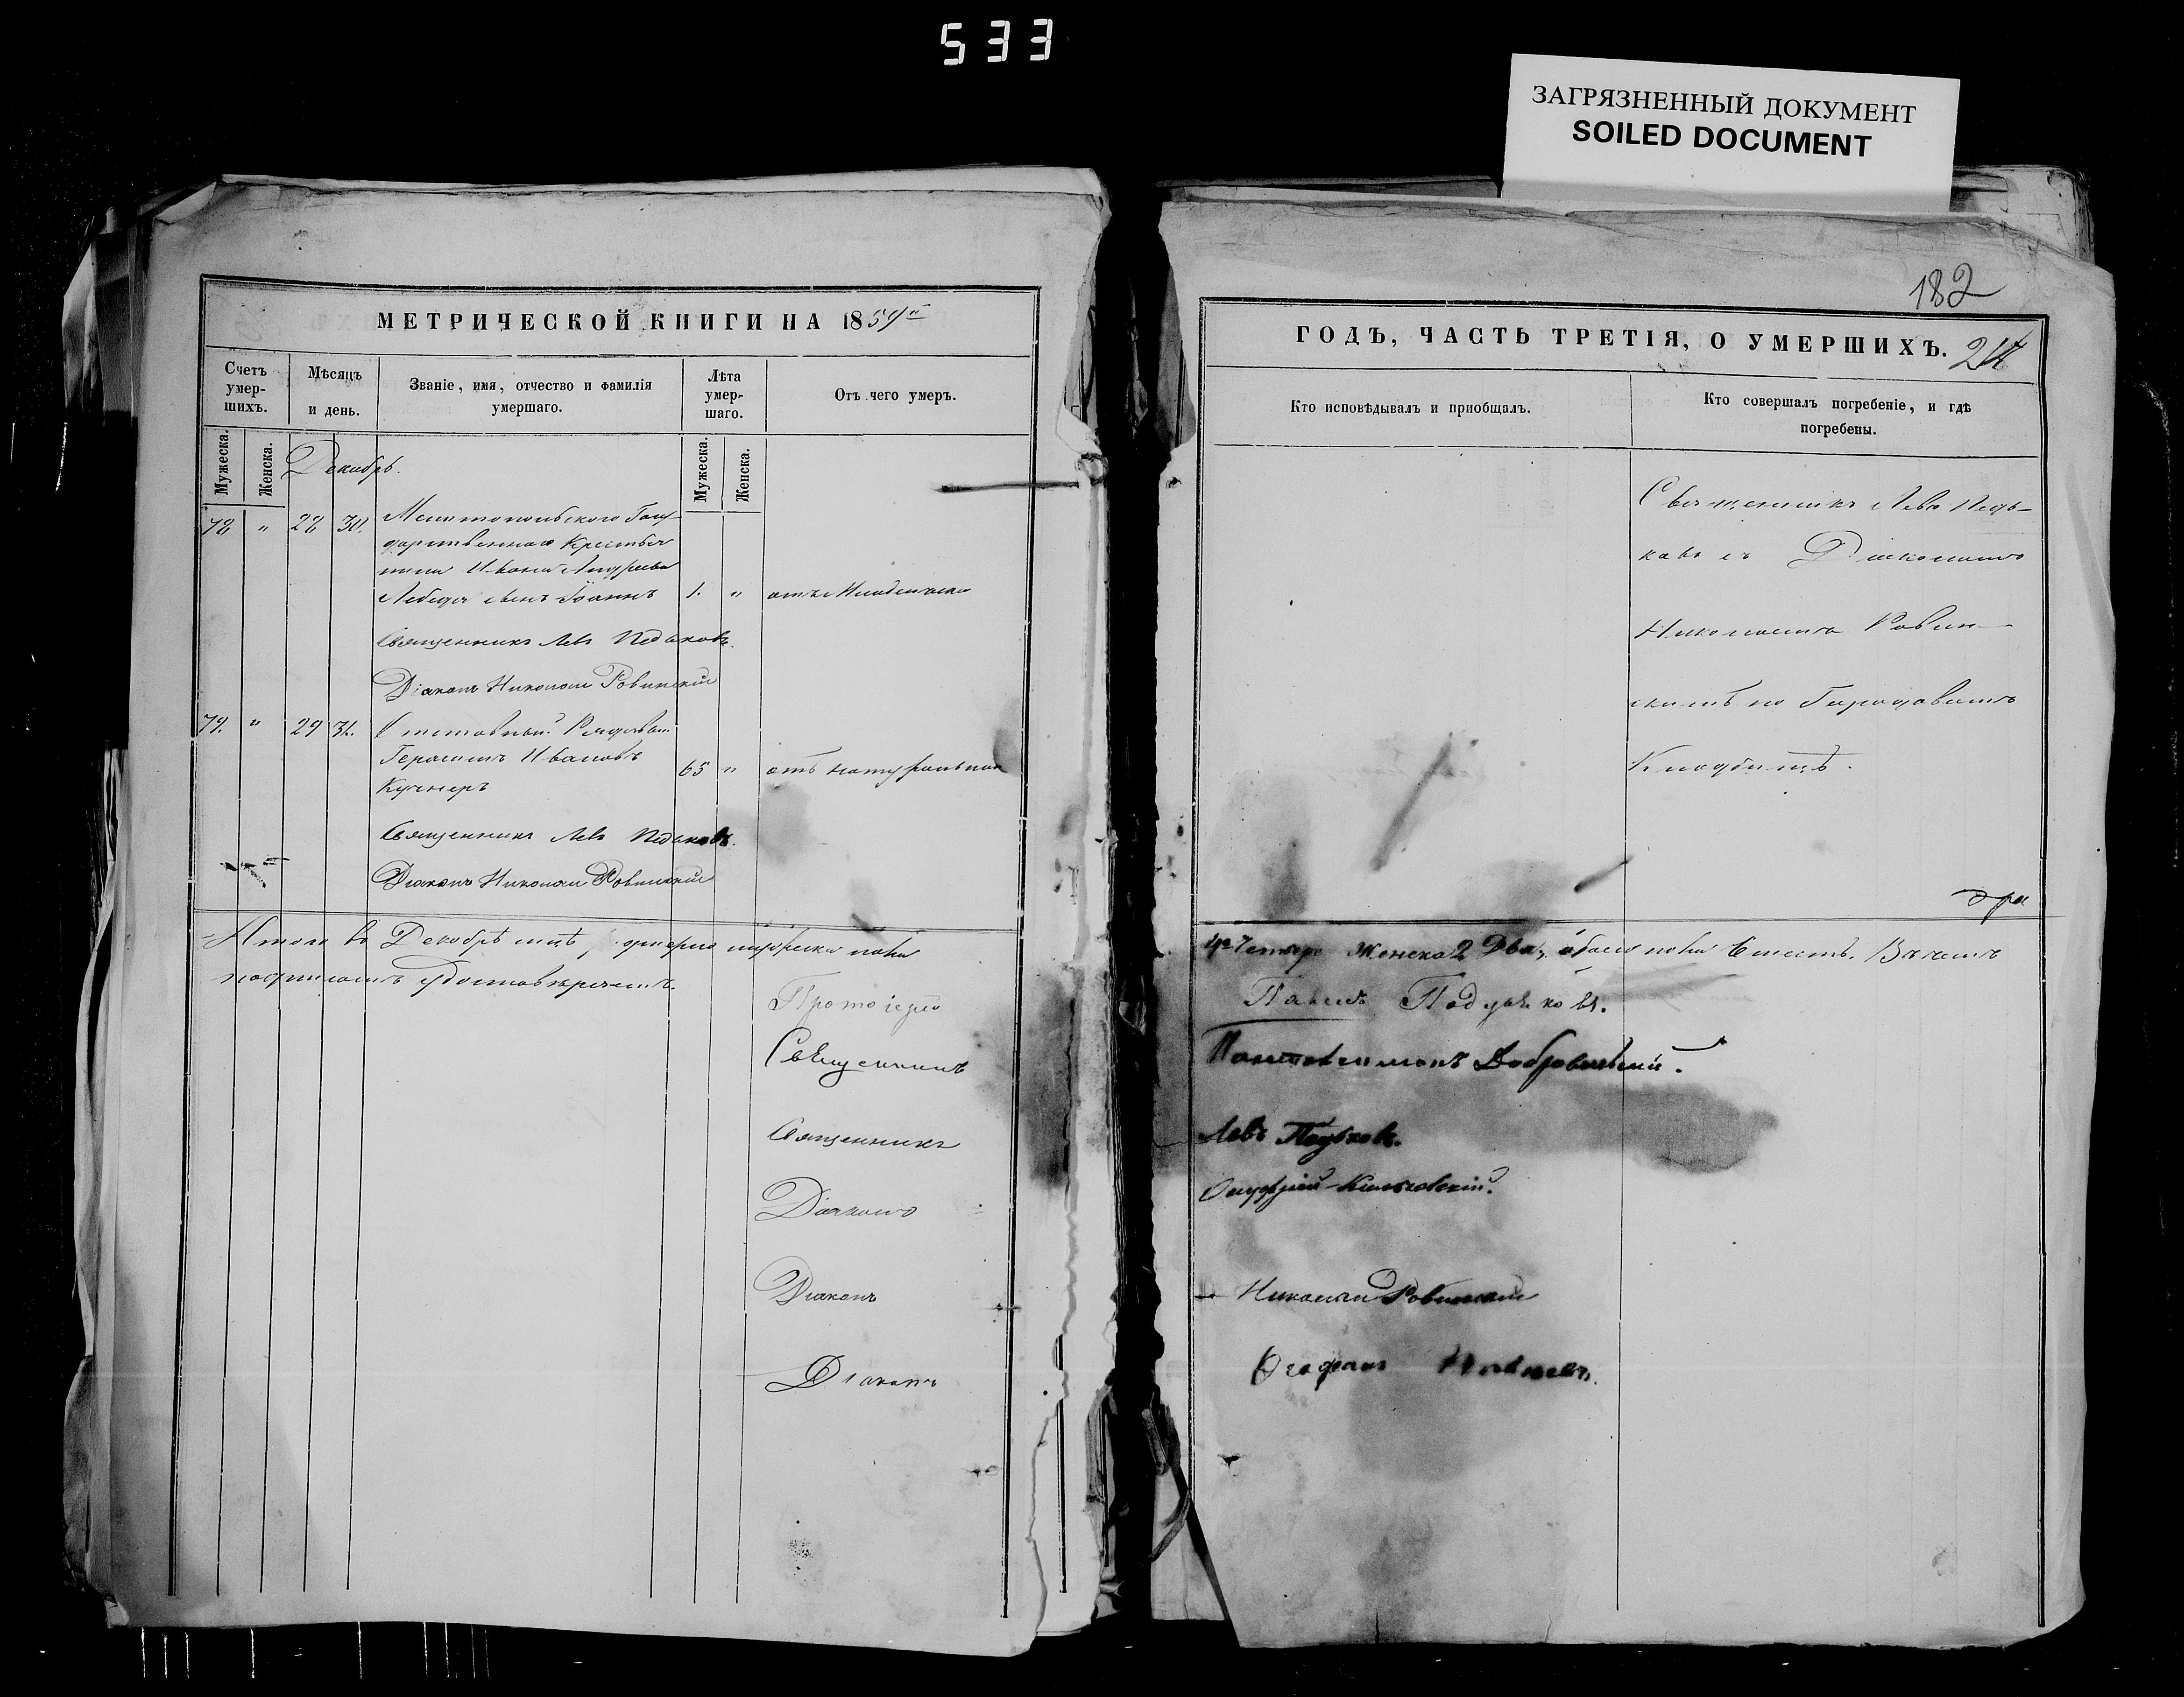 533
ЗАГРЯЗНЕННЫЙ ДОКУМЕНТ
SOILED DOCUMENT
МЕТРИЧЕСКОЙ КНИГИ НА 1859й
Счетъ умер-шихъ.
Мѣсяцъ и день.
Званіе, имя, отчество и фамилія умершаго.
Лѣта умер-шаго.
Отъ чего умеръ.
Мужеска.
Женска.
Мужеска.
Женска.
Декабрь.
78 " 28 30. Мелитопольского Госу-
дарственнаго Крестья
нина Ивана Андреева
Лебедя сынъ Іоаннъ 1. " отъ Младенческ
Священникъ Левъ Педьковъ.
Діаконъ Николай Ровинскій
79. " 29 31. Отставной Рядовой
Герасимъ Ивановъ 65 " отъ натуральной
Кучнеръ
Священникъ Левъ Педьковъ.
Діаконъ Николай Ровинскій
Итого въ Декабрѣ м-цѣ умерло мужеска пола
подписомъ удостовѣряемъ.
Протоіерей
Священникъ
Священникъ
Діаконъ
Діаконъ
Діаконъ
182
ГОДЪ, ЧАСТЬ ТРЕТІЯ, О УМЕРШИХЪ.
Кто исповѣдывалъ и пріобщалъ.
Кто совершалъ погребеніе, и гдѣ погребены.
Священникъ Левъ Педь-
ковъ съ Діакономъ
Николаемъ Ровин-
скимъ на Городовомъ
Кладбищѣ.
4ре Четыре Женска 2 Два, обоего пола 6 шесть. В чемъ
Павелъ
Пантелеимонъ Добровольскій.
Левъ Педьковъ.
Онуфрій
Николай Ровинскій
Ѳеофанъ